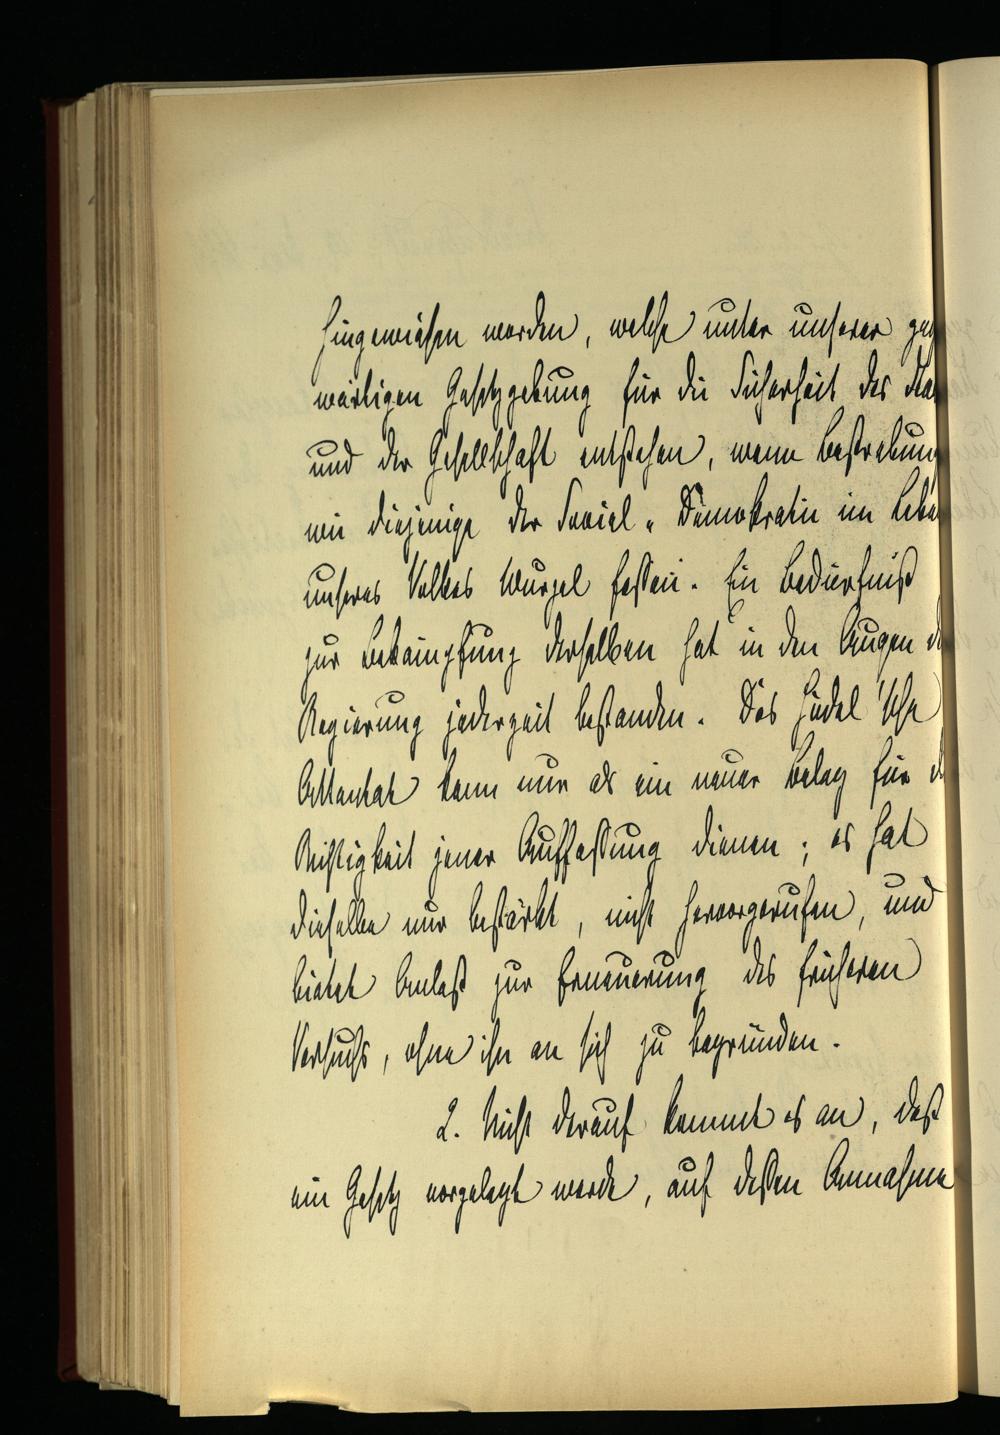 hingewiesen worden, welche unter unserer gegen
wärtigen Gesetzgebung für die Sicherheit des Staa
und der Gesellschaft entstehen, wenn Bestrebung
wie diejenige der Social-Demokratie im Lebe
unseres Volkes Wurzel fassen. Ein Bedürfniß
zur Bekämpfung derselben hat in den Augen de
Regierung jederzeit bestanden. Das Hödel'sche
Attentat kann nur als ein neuer Beleg für d
Richtigkeit jener Auffassung dienen; es hat
dieselbe nur bestärkt, nicht hervorgerufen, und
bietet Anlaß zur Erneuerung des früheren
Versuchs, ohne ihn an sich zu begründen.
2. Nicht darauf kommt es an, daß
ein Gesetz vorgelegt werde, auf dessen Annahme